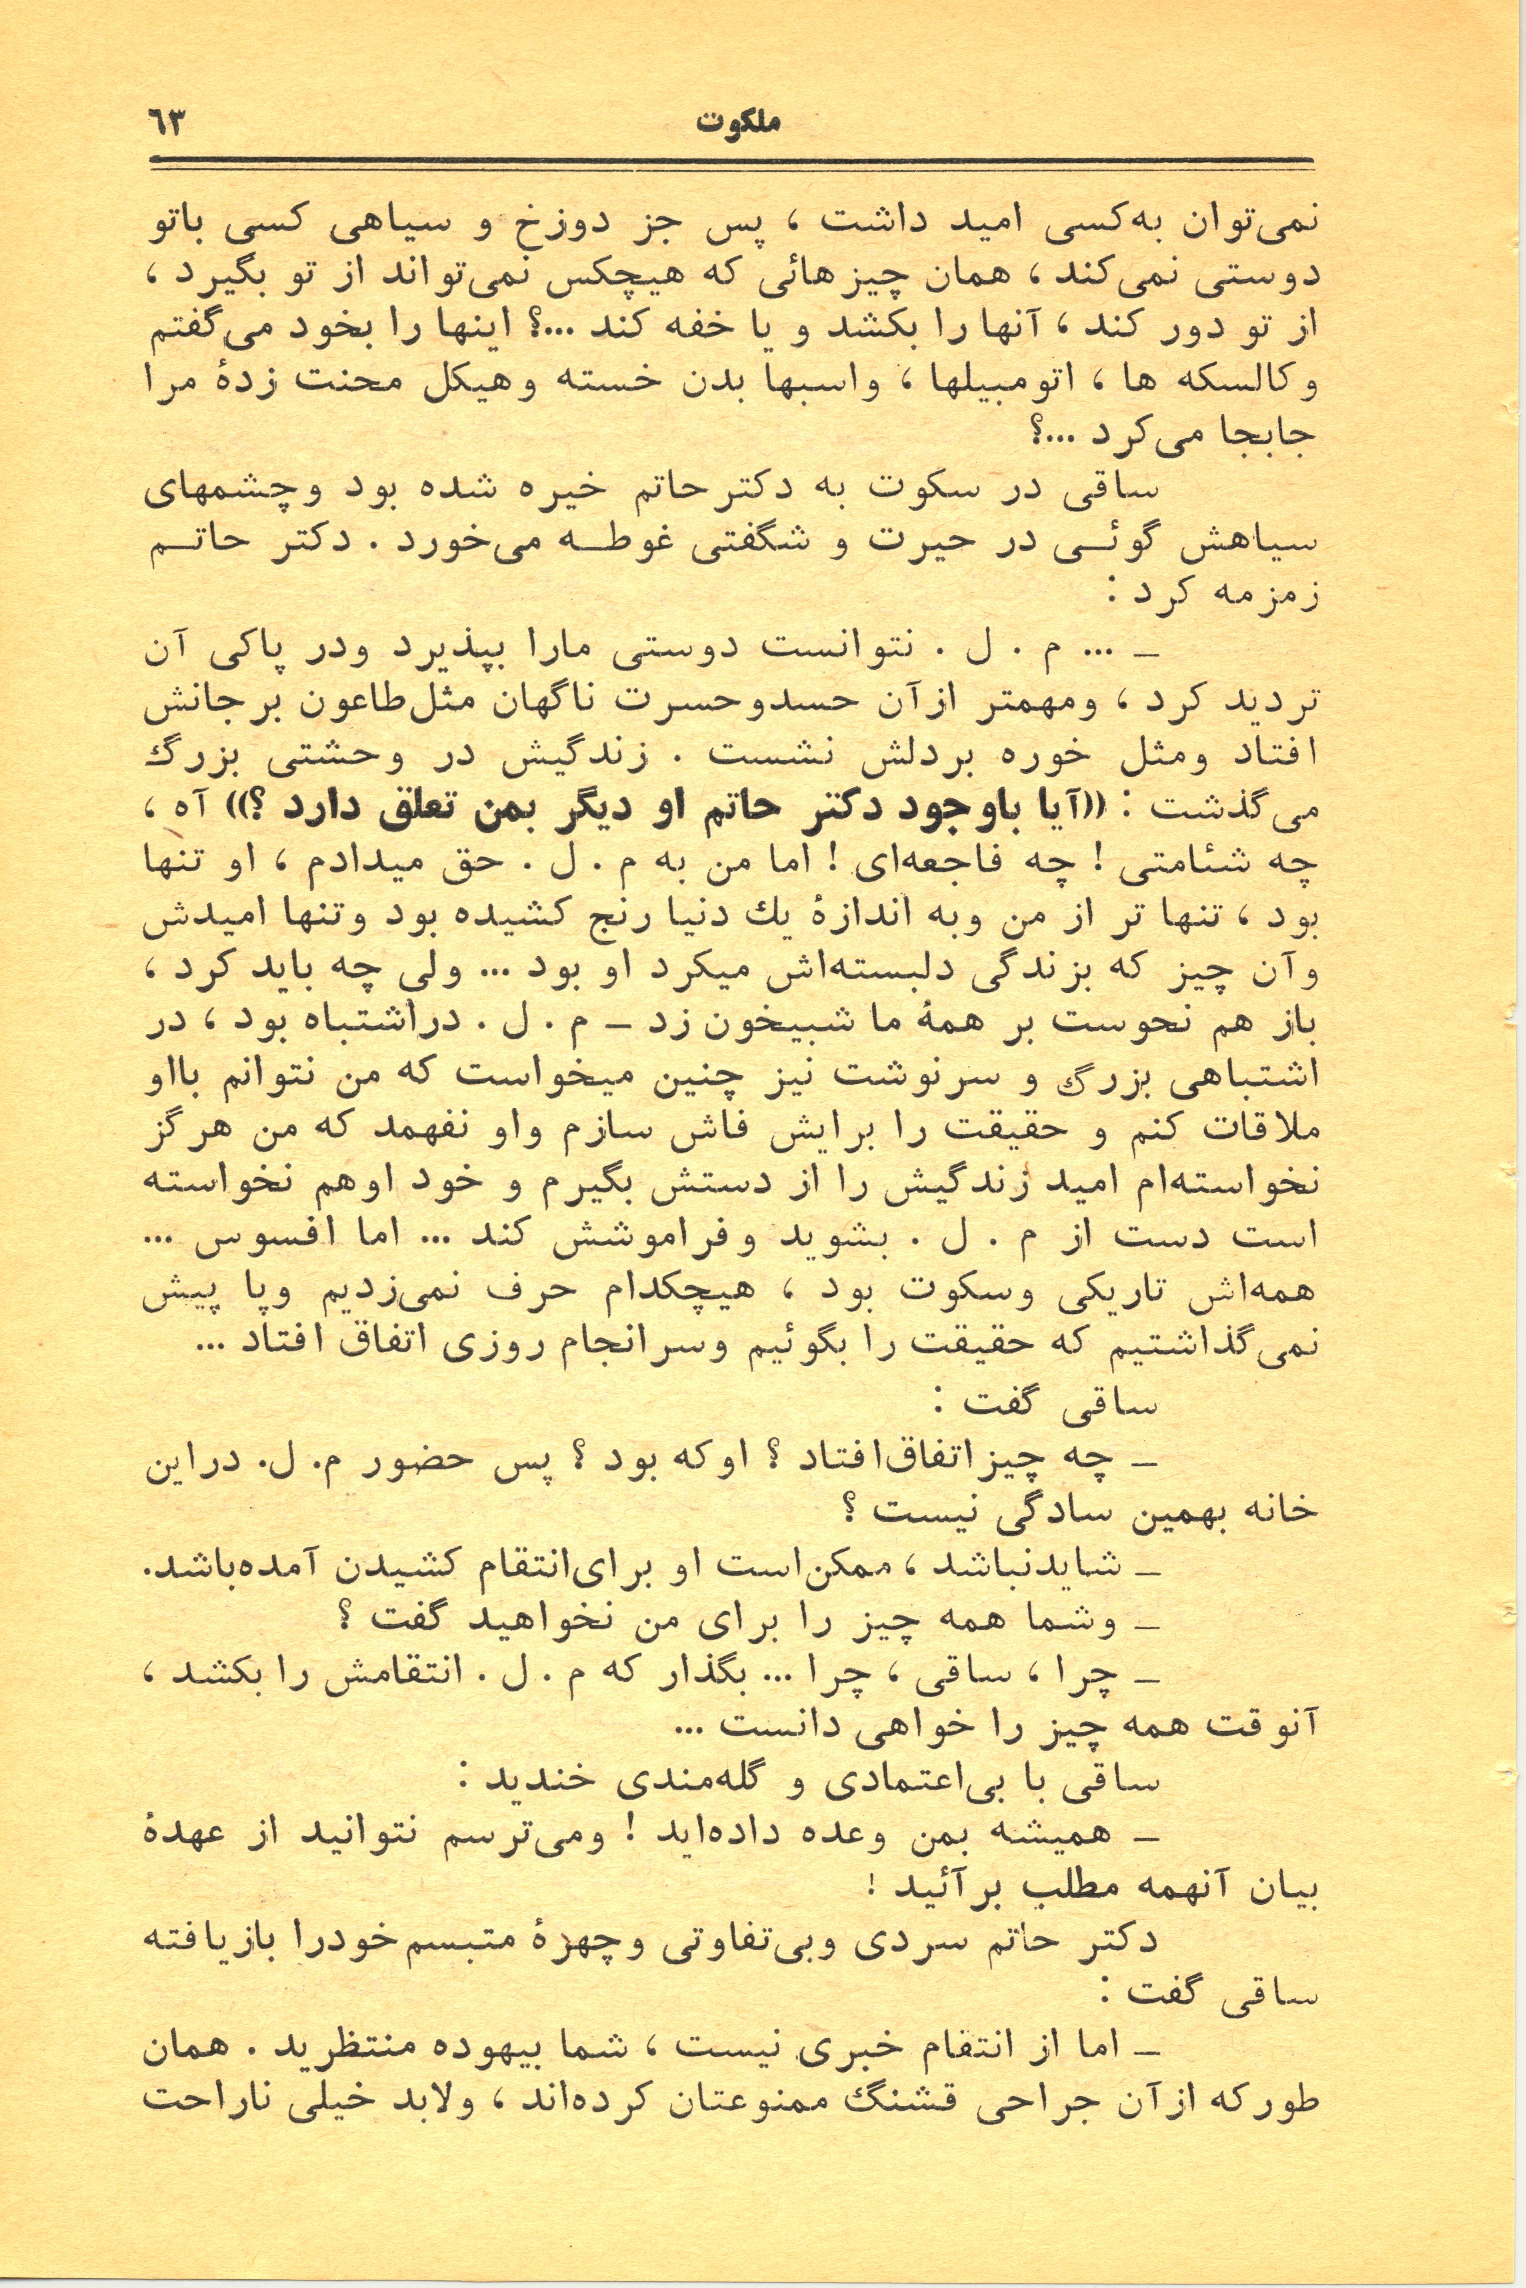 ملکوت
٦٣
نمی‌توان به‌کسی امید داشت ، پس جز دوزخ و سیاهی کسی باتو
دوستی نمی‌کند ، همان چیزهائی که هیچکس نمی‌تواند از تو بگیرد ،
از تو دور کند ، آنها را بکشد و یا خفه کند ...؟ اینها را بخود می‌گفتم
و کالسکه ها ، اتومبیلها ، و اسبها بدن خسته و هیکل محنت زدهٔ مرا
جابجا می‌کرد ...؟
ساقی در سکوت به دکتر حاتم خیره شده بود و چشمهای
سیاهش گوئــی در حیرت و شگفتی غوطــه می‌خورد . دکتر حاتــم
زمزمه کرد :
ــ ... م . ل . نتوانست دوستی مارا بپذیرد ودر پاکی آن
تردید کرد ، ومهمتر ازآن حسدوحسرت ناگهان مثل‌طاعون برجانش
افتاد ومثل خوره بردلش نشست . زندگیش در وحشتی بزرگ
می‌گذشت : ((آیا باوجود دکتر حاتم او دیگر بمن تعلق دارد ؟)) آه ،
چه شئامتی ! چه فاجعه‌ای ! اما من به م . ل . حق میدادم ، او تنها
بود ، تنها تر از من وبه اندازهٔ یك دنیا رنج کشیده بود وتنها امیدش
وآن چیز که بزندگی دلبسته‌اش میکرد او بود ... ولی چه باید کرد ،
باز هم نحوست بر همهٔ ما شبیخون زد ــ م . ل . دراشتباه بود ، در
اشتباهی بزرگ و سرنوشت نیز چنین میخواست که من نتوانم بااو
ملاقات کنم و حقیقت را برایش فاش سازم واو نفهمد که من هرگز
نخواسته‌ام امید زندگیش را از دستش بگیرم و خود اوهم نخواسته
است دست از م . ل . بشوید وفراموشش کند ... اما افسوس ...
همه‌اش تاریکی وسکوت بود ، هیچکدام حرف نمی‌زدیم وپا پیش
نمی‌گذاشتیم که حقیقت را بگوئیم وسرانجام روزی اتفاق افتاد ...
ساقی گفت :
ــ چه چیزاتفاق‌افتاد ؟ اوکه بود ؟ پس حضور م. ل. دراین
خانه بهمین سادگی نیست ؟
ــ شایدنباشد ، ممکن‌است او برای‌انتقام کشیدن آمده‌باشد.
ــ وشما همه چیز را برای من نخواهید گفت ؟
ــ چرا ، ساقی ، چرا ... بگذار که م . ل . انتقامش را بکشد ،
آنوقت همه چیز را خواهی دانست ...
ساقی با بی‌اعتمادی و گله‌مندی خندید :
ــ همیشه بمن وعده داده‌اید ! ومی‌ترسم نتوانید از عهدهٔ
بیان آنهمه مطلب برآئید !
دکتر حاتم سردی وبی‌تفاوتی وچهرهٔ متبسم‌خودرا بازیافته
ساقی گفت :
ــ اما از انتقام خبری نیست ، شما بیهوده منتظرید . همان
طورکه ازآن جراحی قشنگ ممنوعتان کرده‌اند ، ولابد خیلی ناراحت